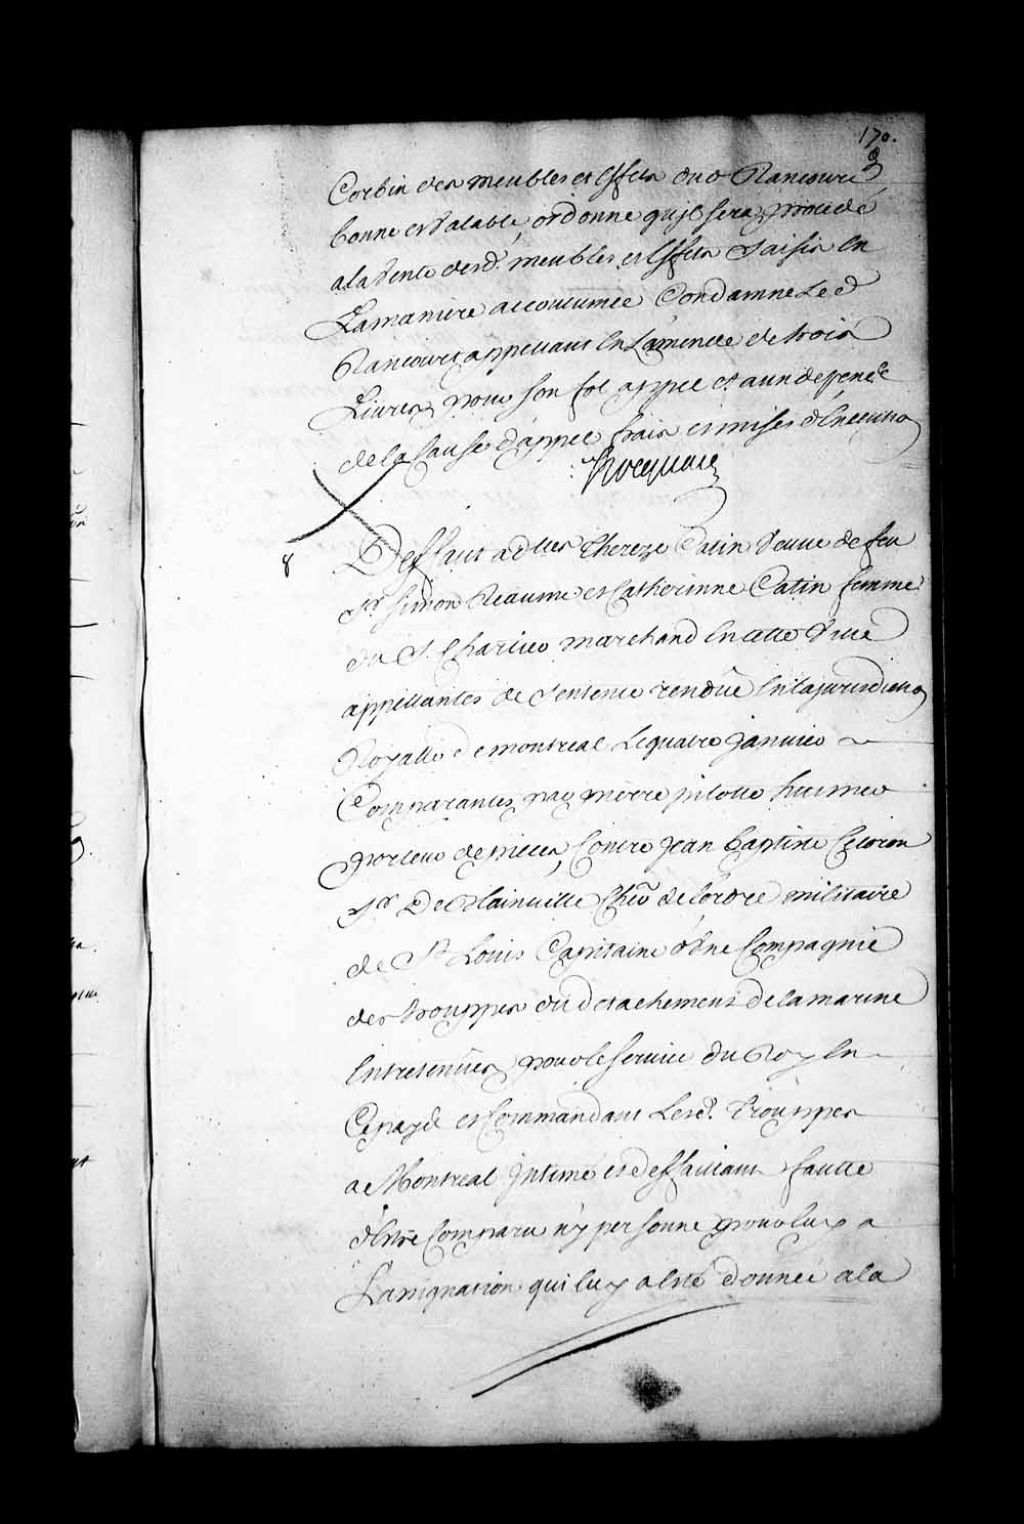 170.
Corbin des meubles et Effets dud Rancourt
bonne et Valable, ordonne quil sera procedé
ala Vente desd. meubles et Effets Saisis En
Lamaniere accoutumée Condamne Led
Rancourt appellant En Lamende de trois
Livres pour son fol appel et aux depens
de la Cause d'appel frais et mises dExecution
Hocquart
8
Deffaut a dlles Thereze Catin Veuve de feu
Sr. Simon Reaume et Catherinne Catin femme
du S. Charlico marchand En cette Ville
appellantes de Sentence rendüe En la jurisdiction
Royalle de montreal Le quatre janvier
Comparantes par pierre pilotte huissier
porteur de pieces, Contre Jean baptiste Celoron
Sr. De Blainville Cher de lordre militaire
de St Louis Capitaine d'une Compagnie
des trouppes du detachement de la marine
Entretenües pour le service du Roy En
Ce pays et Commandant Lesd. Trouppes
a Montreal Intimé et deffaillant faute
d'Estre Comparu n'y personne pour luy a
L'assignation qui luy a Esté donnée a la